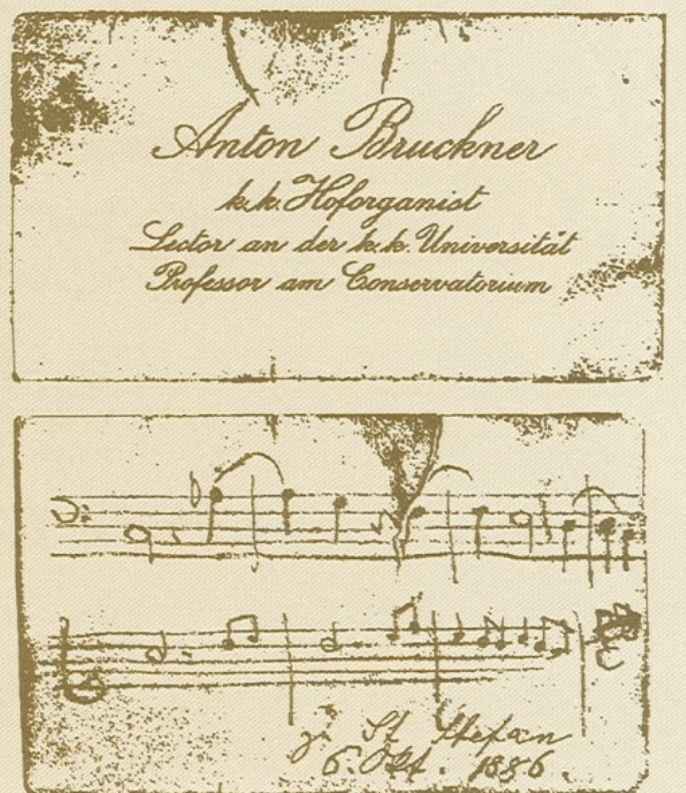 Anton Bruckner
k.k. Hoforganist
Lector an der k.k. Universität
Professor am Conservatorium
St Stefan
Okt. 1886.